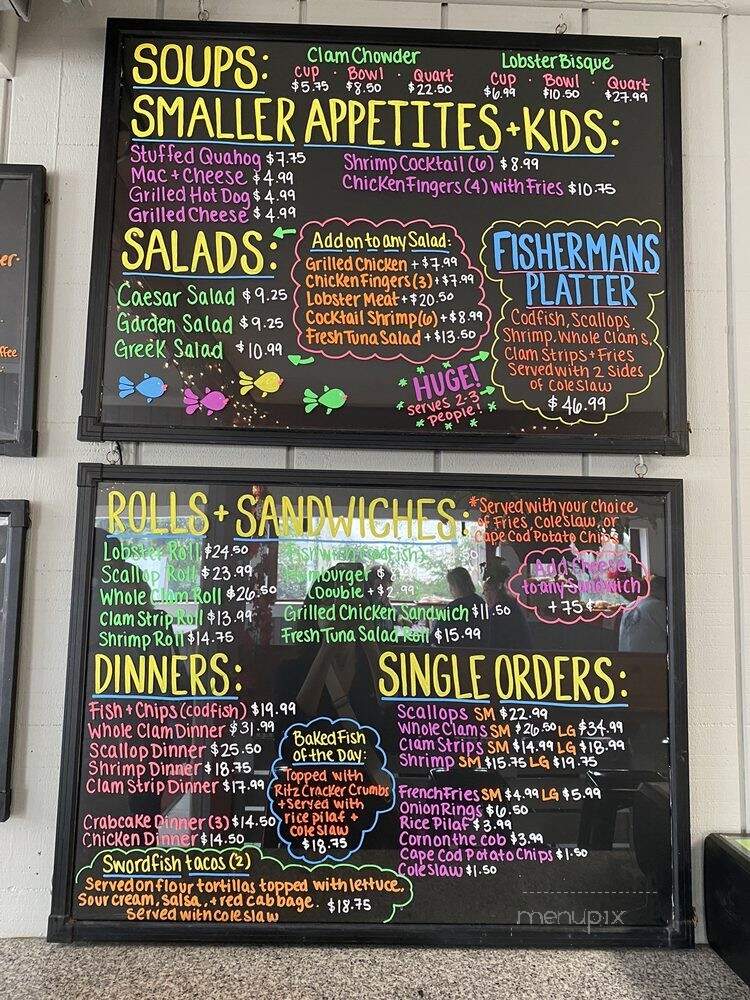 SOUPS:
Clam Chowder
Cup · Bowl · Quart
$5.75 $8.50 $22.50
Lobster Bisque
Cup · Bowl · Quart
$6.99 $10.50 $27.99
SMALLER APPETITES + KIDS:
Stuffed Quahog $7.75
Mac + Cheese $4.99
Grilled Hot Dog $4.99
Grilled Cheese $4.99
Shrimp Cocktail (6) $8.99
Chicken Fingers (4) with Fries $10.75
SALADS:
Caesar Salad $9.25
Garden Salad $9.25
Greek Salad $10.99
Add on to any Salad:
Grilled Chicken + $7.99
Chicken Fingers (3) + $7.99
Lobster Meat + $20.50
Cocktail Shrimp (6) + $8.99
Fresh Tuna Salad + $13.50
FISHERMANS
PLATTER
Codfish, Scallops,
Shrimp, Whole Clams,
Clam Strips + Fries
Served with 2 sides
of Coleslaw
$46.99
HUGE!
serves 2-3
people!
ffee
ROLLS + SANDWICHES:
*Served with your choice
of Fries, Coleslaw, or
Cape Cod Potato Chips
Lobster Roll $24.50
Scallop Roll $23.99
Whole Clam Roll $26.50
Clam Strip Roll $13.99
Shrimp Roll $14.75
(codfish)
Hamburger $8
(Double + $2.99
Grilled Chicken Sandwich $11.50
Fresh Tuna Salad Roll $15.99
Add Cheese
to any Sandwich
+ 75¢
DINNERS:
Fish + Chips (codfish) $19.99
Whole Clam Dinner $31.99
Scallop Dinner $25.50
Shrimp Dinner $18.75
Clam Strip Dinner $17.99
Crabcake Dinner (3) $14.50
Chicken Dinner $14.50
Baked Fish
of the Day:
Topped with
Ritz Cracker Crumbs
+ Served with
rice pilaf +
coleslaw
$18.75
Swordfish tacos (2)
Served on flour tortillas topped with lettuce,
Sour cream, salsa, + red cabbage. $18.75
Served with coleslaw
SINGLE ORDERS:
Scallops SM $22.99
Whole Clams SM $26.50 LG $34.99
Clam Strips SM $14.99 LG $18.99
Shrimp SM $15.75 LG $19.75
French Fries SM $4.99 LG $5.99
Onion Rings $6.50
Rice Pilaf $3.99
Corn on the cob $3.99
Cape Cod Potato Chips $1.50
Coleslaw $1.50
menupix